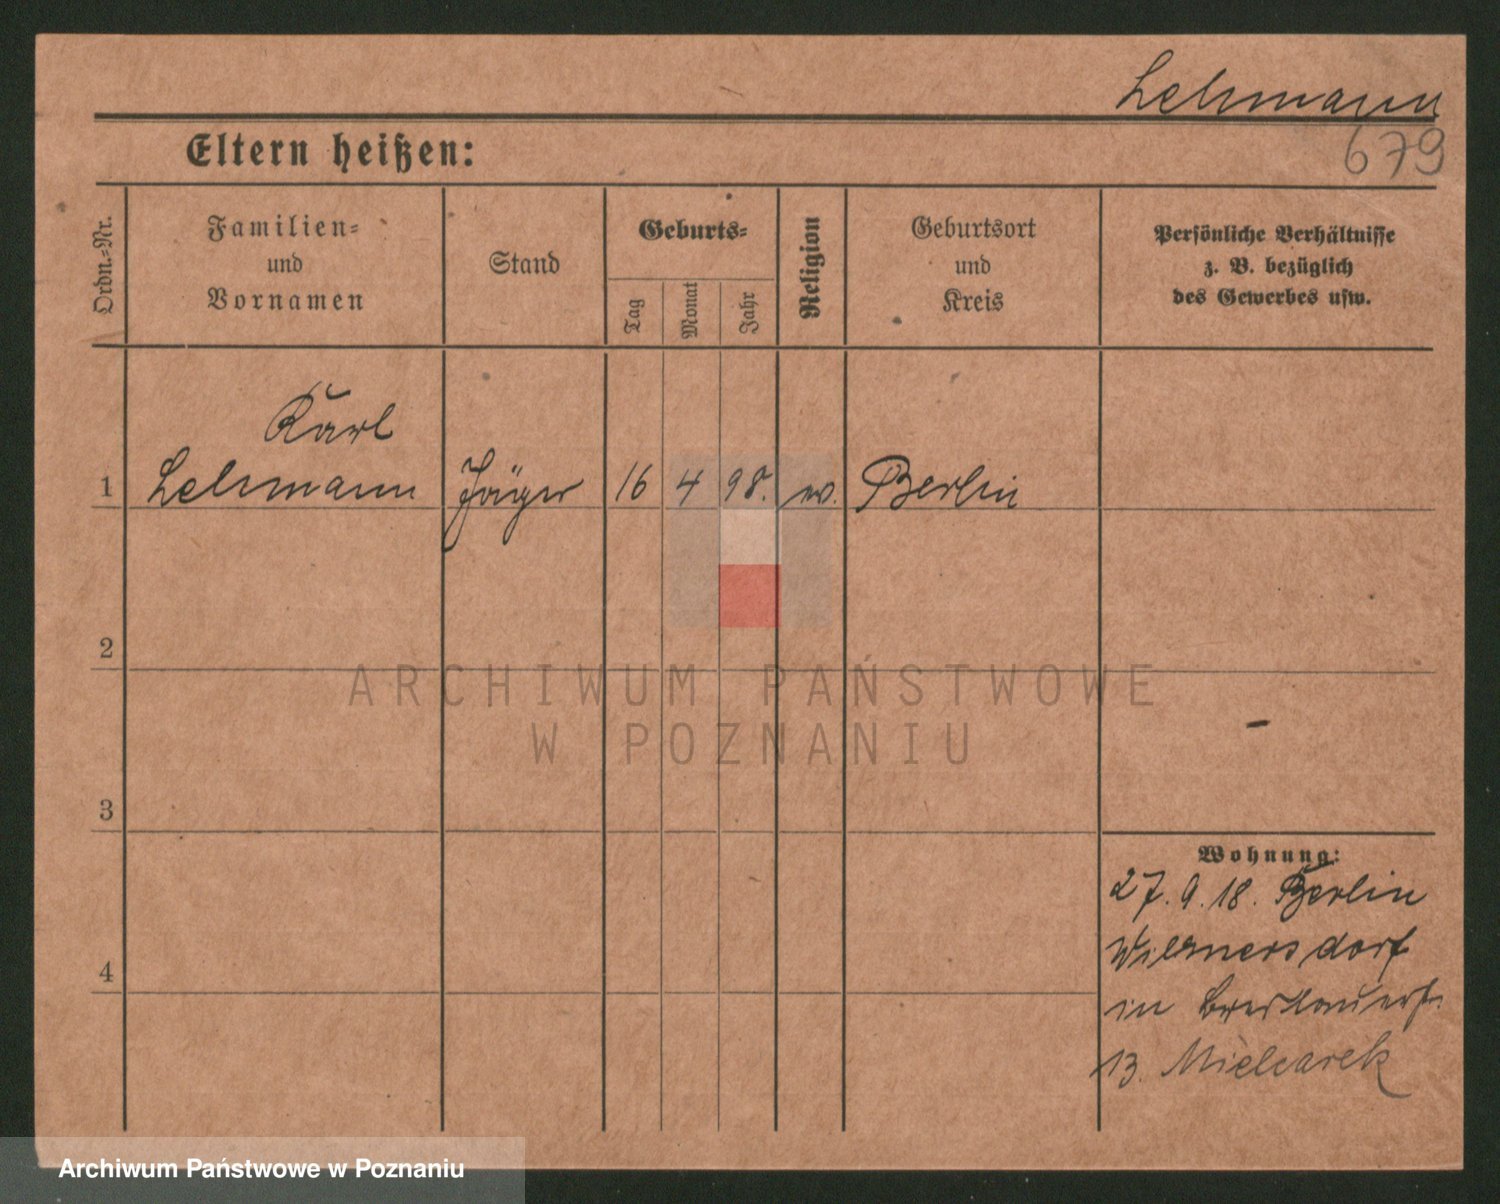 Lehmann
679
Eltern heißen:
Ordn.-Nr.
Familien-
und
Vornamen
Stand
Geburts-
Tag
Monat
Jahr
Religion
Geburtsort
und
Kreis
Persönliche Verhältnisse
z. B. bezüglich
des Gewerbes usw.
Karl
1 Lehmann Jäger 16 4 98. ev. Berlin
2
ARCHIWUM PAŃSTWOWE
W POZNANIU
3
4
Wohnung:
27. 9. 18. Berlin
Wilmersdorf
in Breslauerstr.
13. Mielcarek
Archiwum Państwowe w Poznaniu